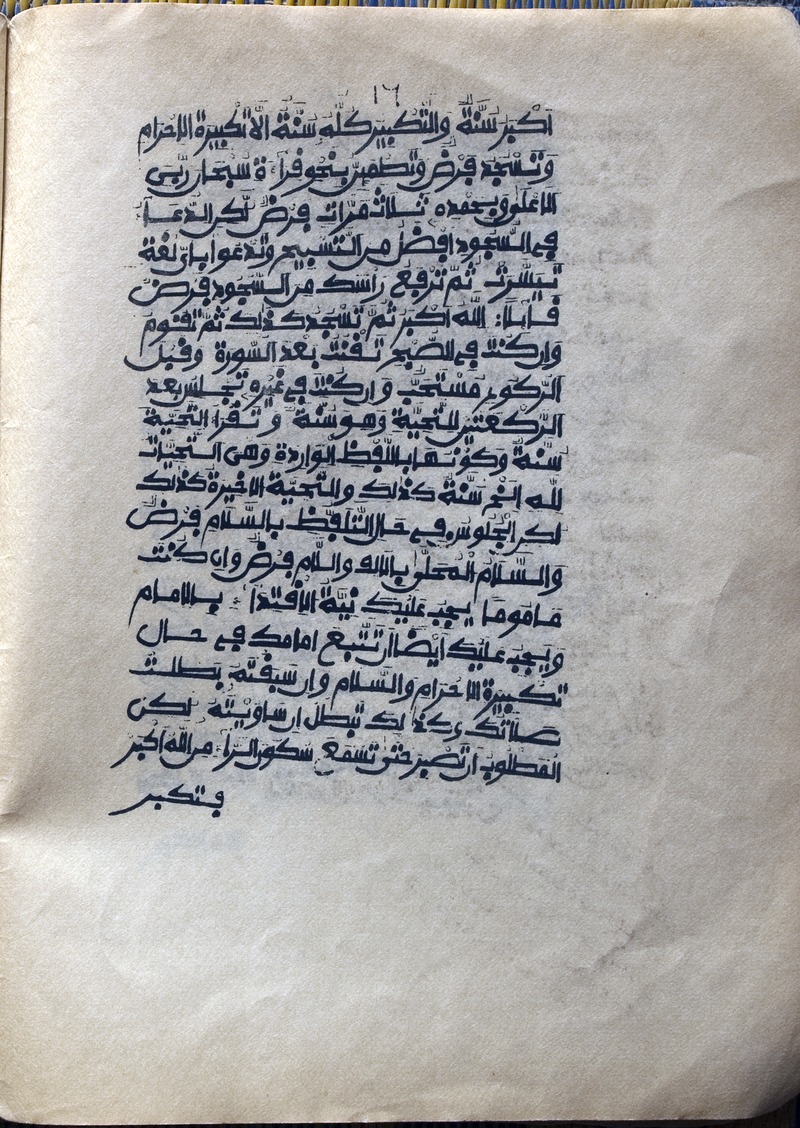 ١٦
اكبر سنة والتكبير كله سنة الا تكبيرة الاحرام
وتسجد فرض وتطمئن بنحو قراءة سبحان ربى
الاعلى وبحمده ثلاث مرات فرض لكن الدعاء
فى السجود افضل من التسبيح وتدعوا باى لغة
تيسرت ثم ترفع راسك من السجود فرض
قايلا: الله اكبر ثم تسجد كذلك ثم تقوم
وان كنت فى الصبح تقنت بعد السورة وقبل
الركوع مستحب وان كنت فى غيره تجلس بعد
الركعتين للتحية وهو سنة وتقرا التحية
سنة وكونها باللفظ الواردة وهى التحيات
لله الخ سنة كذلك وللتحية الاخيرة كذلك
لكن الجلوس فى حال التلفظ بالسلام فرض
والسلام المحلى بالالف واللام فرض وان كنت
ماموما يجب عليك نية الاقتداء بالامام
ويجب عليك ايضا ان تتبع امامك فى حال
تكبيرة الاحرام والسلام وان سبقته بطلت
صلاتك وكذلك تبطل ان ساويته لكن
المطلوب ان تصبر حتى تسمع سكون الراء من الله اكبر
فتكبر